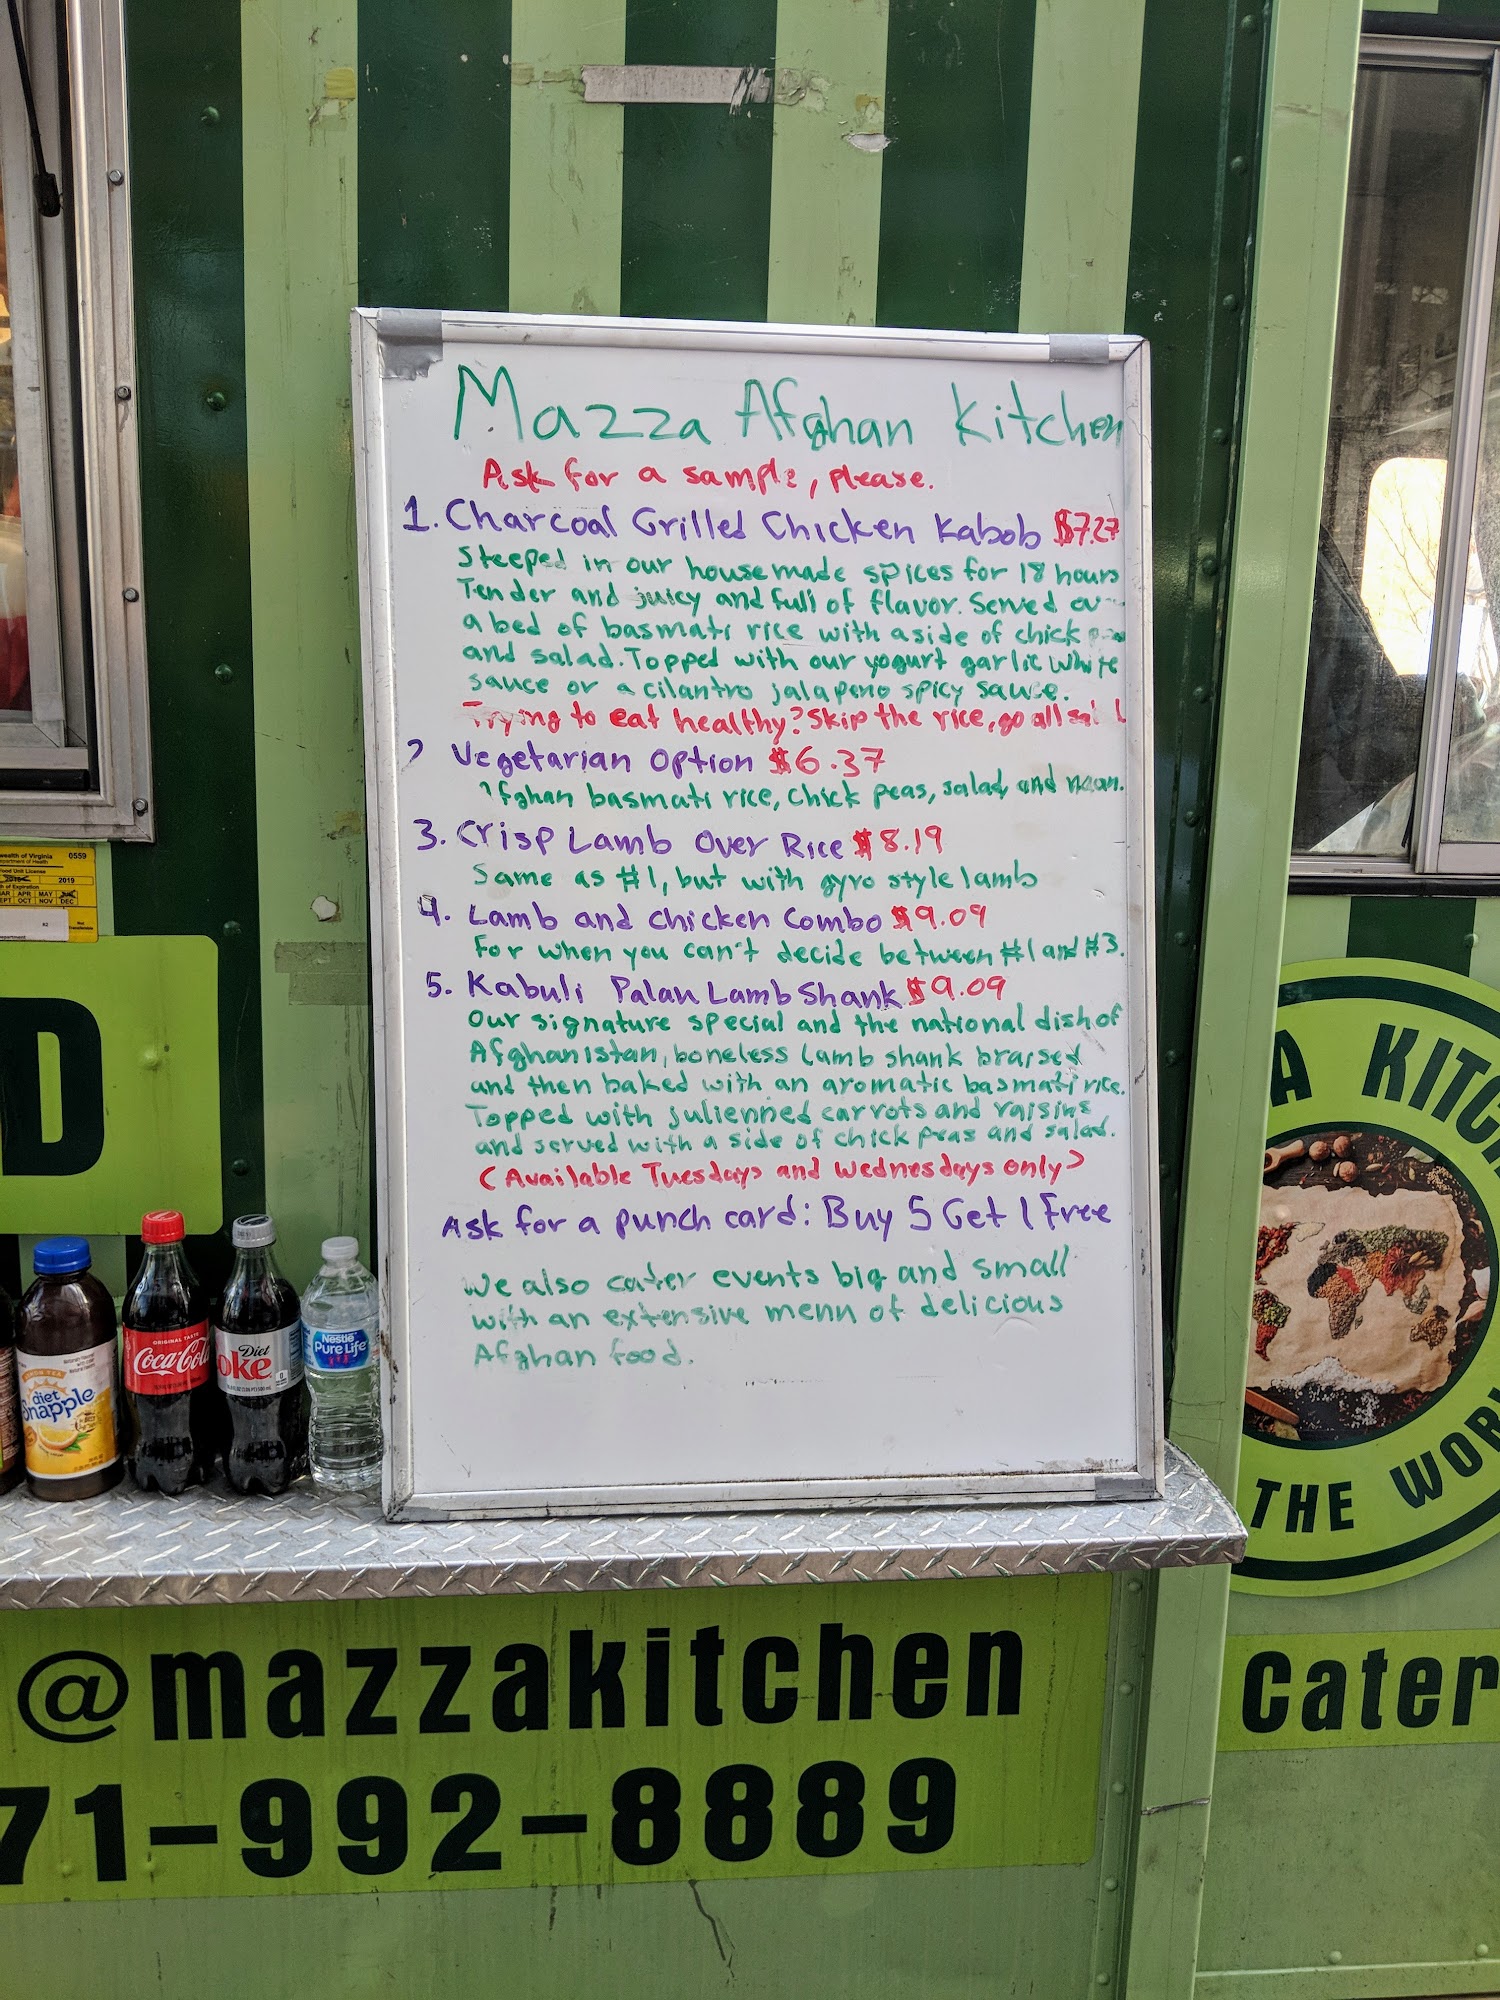 Mazza Afghan Kitchen
Ask for a sample, please.
1. Charcoal Grilled Chicken Kabob $7.27
Steeped in our housemade spices for 18 hours
Tender and juicy and full of flavor. Served
a bed of basmati rice with a side of chick
and salad. Topped with our yogurt garlic white
sauce or a cilantro jalapeno spicy sauce.
Trying to eat healthy? Skip the rice, go all
2 Vegetarian Option $6.37
Afghan basmati rice, chick peas, salad and naan.
3. Crisp Lamb Over Rice $8.19
Same as #1, but with gyro style lamb
4. Lamb and Chicken Combo $9.09
For when you can't decide between #1 and #3.
5. Kabuli Palau Lamb Shank $9.09
Our signature special and the national dish of
Afghanistan, boneless lamb shank braised
and then baked with an aromatic basmati rice.
Topped with julienned carrots and raisins
and served with a side of chick peas and salad.
(Available Tuesdays and Wednesdays only)
Ask for a punch card: Buy 5 Get 1 Free
We also cater events big and small
with an extensive menu of delicious
Afghan food.
0559
2019
MAY
OCT NOV DEC
D
diet
Snapple
ORIGINAL TASTE
Coca-Cola
Diet
Coke
Nestle
Pure Life
A KITCH
THE WOR
@mazzakitchen
71-992-8889
Cater